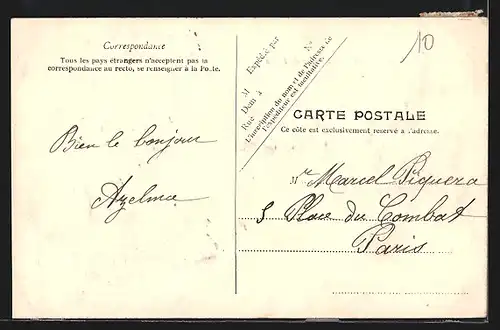 Correspondance
Tous les pays étrangers n'acceptent pas la
correspondance au recto, se renseigner à la Poste.
Bien le bonjour
Azelma
Expédié par
M N°
Dem à
Rue
L'inscription du nom et de l'adresse de
l'expéditeur est facultative.
10
CARTE POSTALE
Ce côté est exclusivement réservé à l'adresse.
Mr Marcel Piquera
5 Place du Combat
Paris